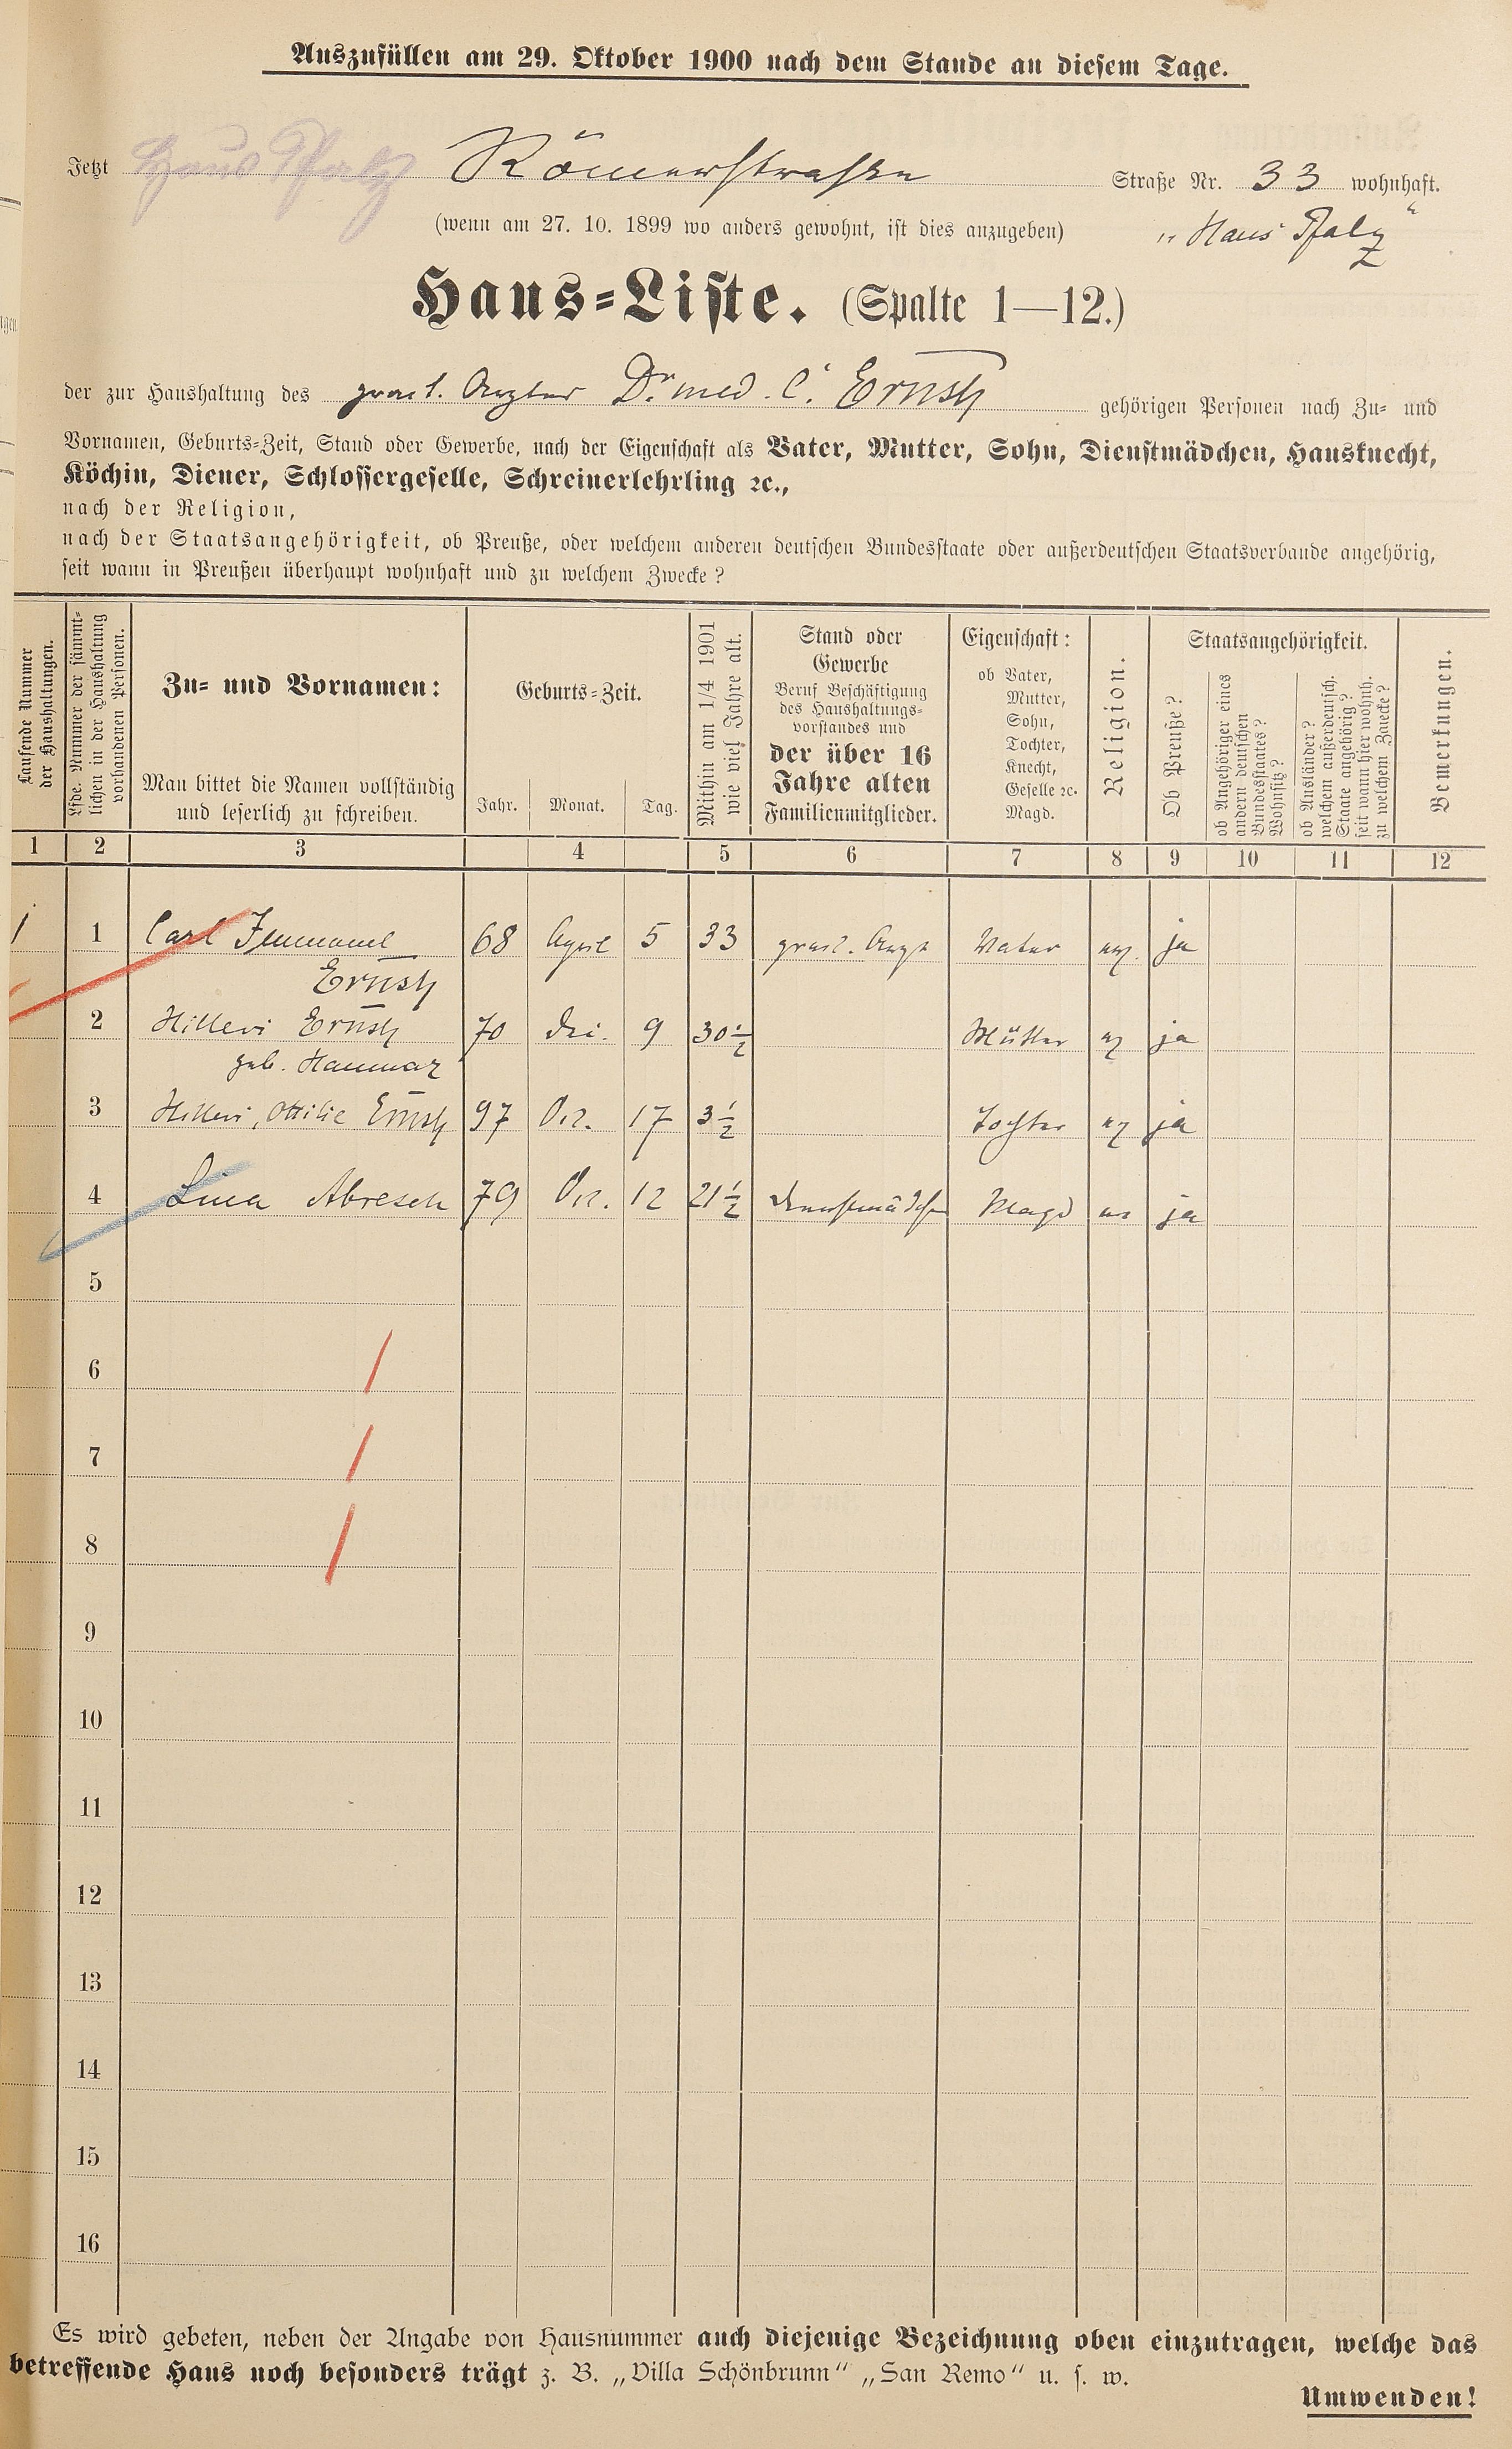 Auszufüllen am 29. Oktober 1900 nach dem Stande an diesem Tage.
Jetzt Haus Pfalz Römerstraße Straße Nr. 33 wohnhaft.
(wenn am 27. 10. 1899 wo anders gewohnt, ist dies anzugeben) „Haus Pfalz“
Haus-Liste. (Spalte 1—12.)
der zur Haushaltung des pract. Arztes Dr. med. C. Ernst gehörigen Personen nach Zu- und
Vornamen, Geburts-Zeit, Stand oder Gewerbe, nach der Eigenschaft als Vater, Mutter, Sohn, Dienstmädchen, Hausknecht,
Köchin, Diener, Schlossergeselle, Schreinerlehrling ꝛc.,
nach der Religion,
nach der Staatsangehörigkeit, ob Preuße, oder welchem anderen deutschen Bundesstaate oder außerdeutschen Staatsverbande angehörig,
seit wann in Preußen überhaupt wohnhaft und zu welchem Zwecke?
Laufende Nummer
der Haushaltungen.
Lfde. Nummer der sämmt-
lichen in der Haushaltung
vorhandenen Personen.
Zu- und Vornamen:
Man bittet die Namen vollständig
und leserlich zu schreiben.
Geburts-Zeit.
Jahr. Monat. Tag.
Mithin am 1/4 1901
wie viel Jahre alt.
Stand oder
Gewerbe
Beruf Beschäftigung
des Haushaltungs-
vorstandes und
der über 16
Jahre alten
Familienmitglieder.
Eigenschaft:
ob Vater,
Mutter,
Sohn,
Tochter,
Knecht,
Geselle ꝛc.
Magd.
Religion.
Staatsangehörigkeit.
Ob Preuße?
ob Angehöriger eines
andern deutschen
Bundesstaates?
Wohnsitz?
ob Ausländer?
welchem außerdeutsch.
Staate angehörig?
seit wann hier wohnh.
zu welchem Zwecke?
Bemerkungen.
1 2 3 4 5 6 7 8 9 10 11 12
1 1 Carl Immanuel 68 April 5 33 pract. Arzt Vater ev. ja
Ernst
2 Hillevi Ernst 70 9 30 1/2 Mutter ev ja
geb. Hammar
3 Hillevi, Ottilie Ernst 97 Oct. 17 3 1/2 Tochter ev ja
4 Lina Abresch 79 Oct. 12 21 1/2 Dienstmädchen Magd ev ja
5
6
7
8
9
10
11
12
13
14
15
16
Es wird gebeten, neben der Angabe von Hausnummer auch diejenige Bezeichnung oben einzutragen, welche das
betreffende Haus noch besonders trägt z. B. „Villa Schönbrunn“ „San Remo“ u. s. w.
Umwenden!